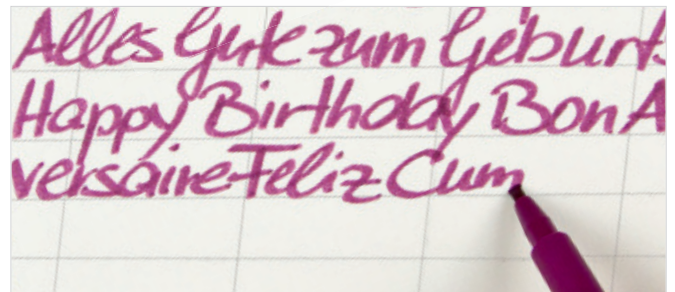 Alles Gute zum Geburts
Happy Birthday Bon A
versaire Feliz Cum